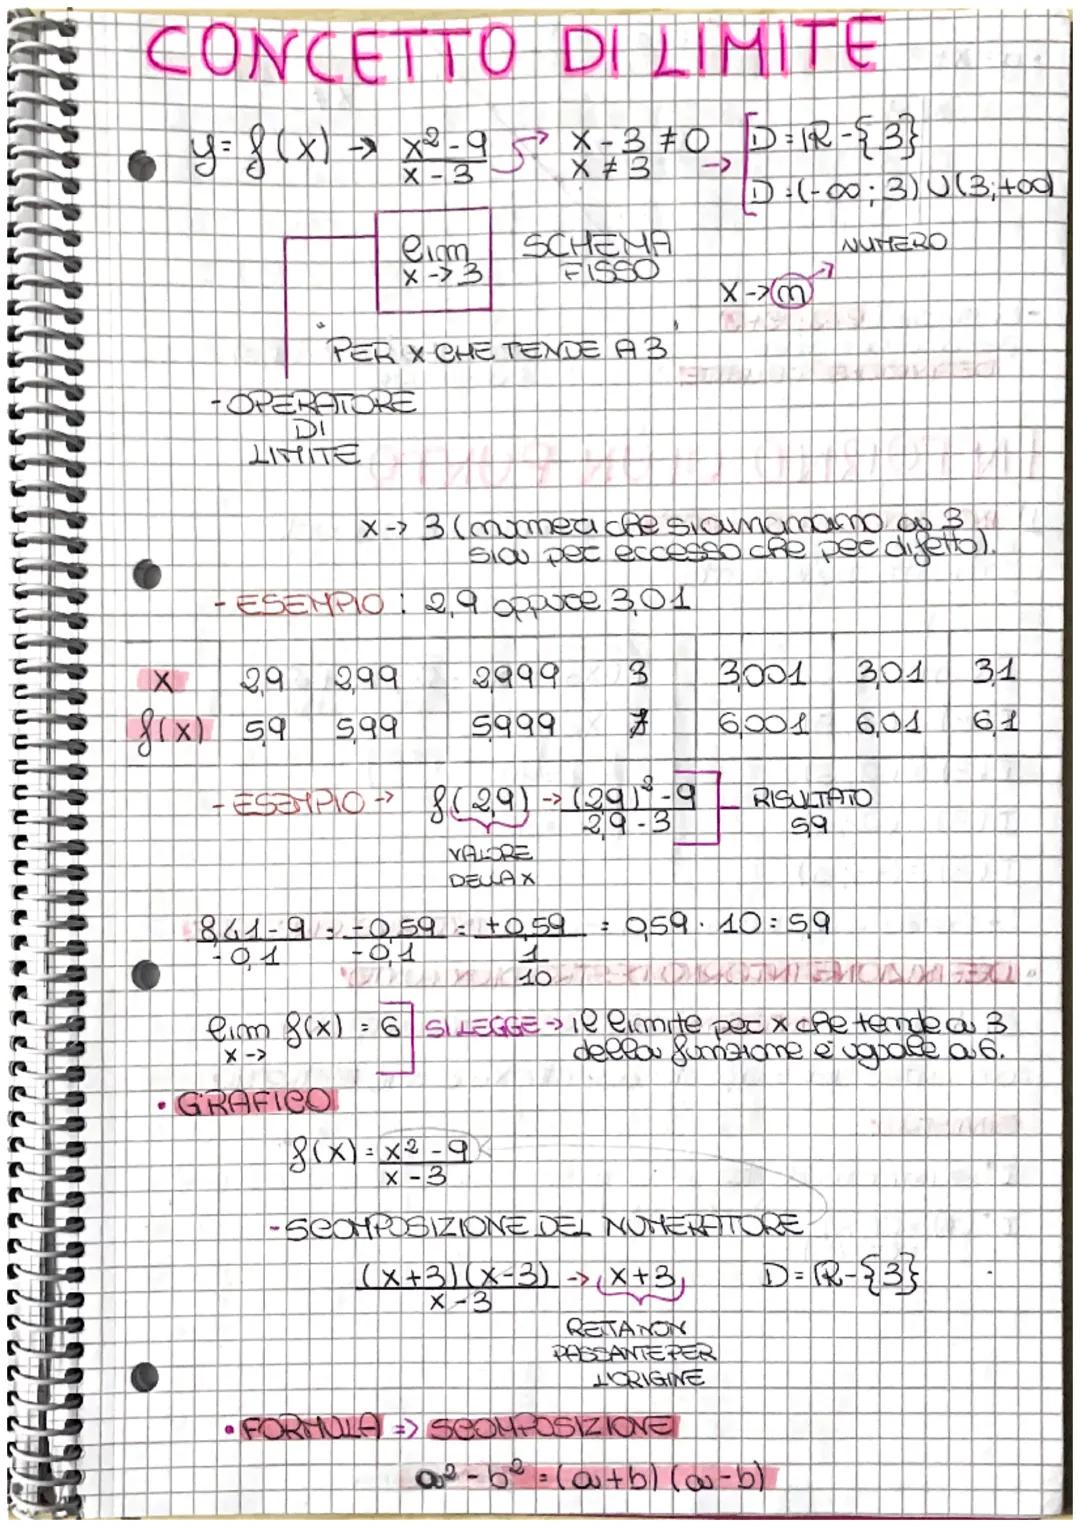 CONCETTO DI LIMITE
y = f(x) → x² - 9 / x - 3 → x - 3 ≠ 0 → D = R - {3}
x ≠ 3 D : (-∞; 3) U (3; +∞)
lim x → 3 SCHEMA FISSO
x → n NUMERO
"PER X CHE TENDE A 3"
- OPERATORE
DI
LIMITE
x → 3 (numeri che si avvicinano a 3
sia per eccesso che per difetto).
- ESEMPIO : 2,9 oppure 3,01
x 2,9 2,99 2,999 3 3,001 3,01 3,1
f(x) 5,9 5,99 5,999 ∄ 6,001 6,01 6,1
- ESEMPIO → f(2,9) → (2,9)² - 9 / 2,9 - 3 RISULTATO
5,9
VALORE
DELLA X
8,41 - 9 / -0,1 = -0,59 / -0,1 = +0,59 / 1/10 = 0,59 · 10 = 5,9
lim x → f(x) = 6 SI LEGGE → il limite per x che tende a 3
della funzione è uguale a 6.
• GRAFICO
f(x) = x² - 9 / x - 3
- SCOMPOSIZIONE DEL NUMERATORE
(x+3)(x-3) / x - 3 → x + 3 D = R - {3}
RETTA NON
PASSANTE PER
L'ORIGINE
• FORMULA => SCOMPOSIZIONE
a² - b² = (a+b) (a-b)